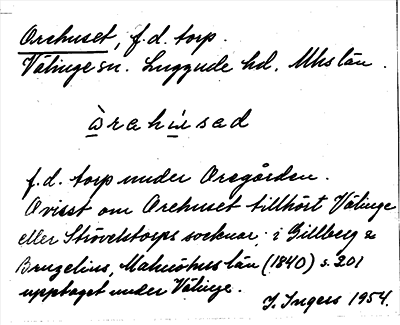 Orehuset, f.d. torp.
Välinge sn. Luggude hd. Mhs län.
òrahúsad
f.d. torp under Oregården.
Ovisst om Orehuset tillhört Välinge
eller Strövelstorps socknar; i Gillberg &
Brugelius, Malmöhus län (1840) s. 201
upptaget under Välinge.
I. Ingers 1954.